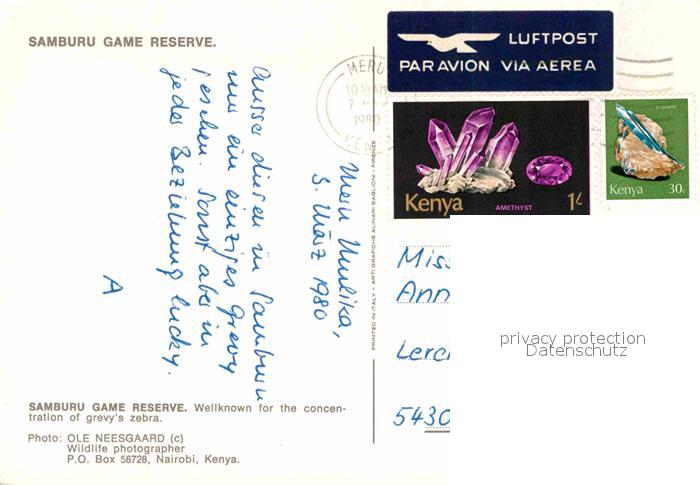 SAMBURU GAME RESERVE.
LUFTPOST
PAR AVION VIA AEREA
MERU
10 30 AM
1980
KENYA
Kenya
AMETHYST
1/-
KYANITE
Kenya
30c
Meru Mulika,
5. März 1980
Ausser diesen in Samburu
nur ein einziges Grevy
gesehen. Sonst aber in
jeder Beziehung lucky.
A
PRINTED IN ITALY - ARTI GRAFICHE ALINARI BAGLIONI - FIRENZE
Miss
Ann
Lerc
5430
privacy protection
Datenschutz
SAMBURU GAME RESERVE. Wellknown for the concen-
tration of grevy's zebra.
Photo: OLE NEESGAARD (c)
Wildlife photographer
P.O. Box 56728, Nairobi, Kenya.